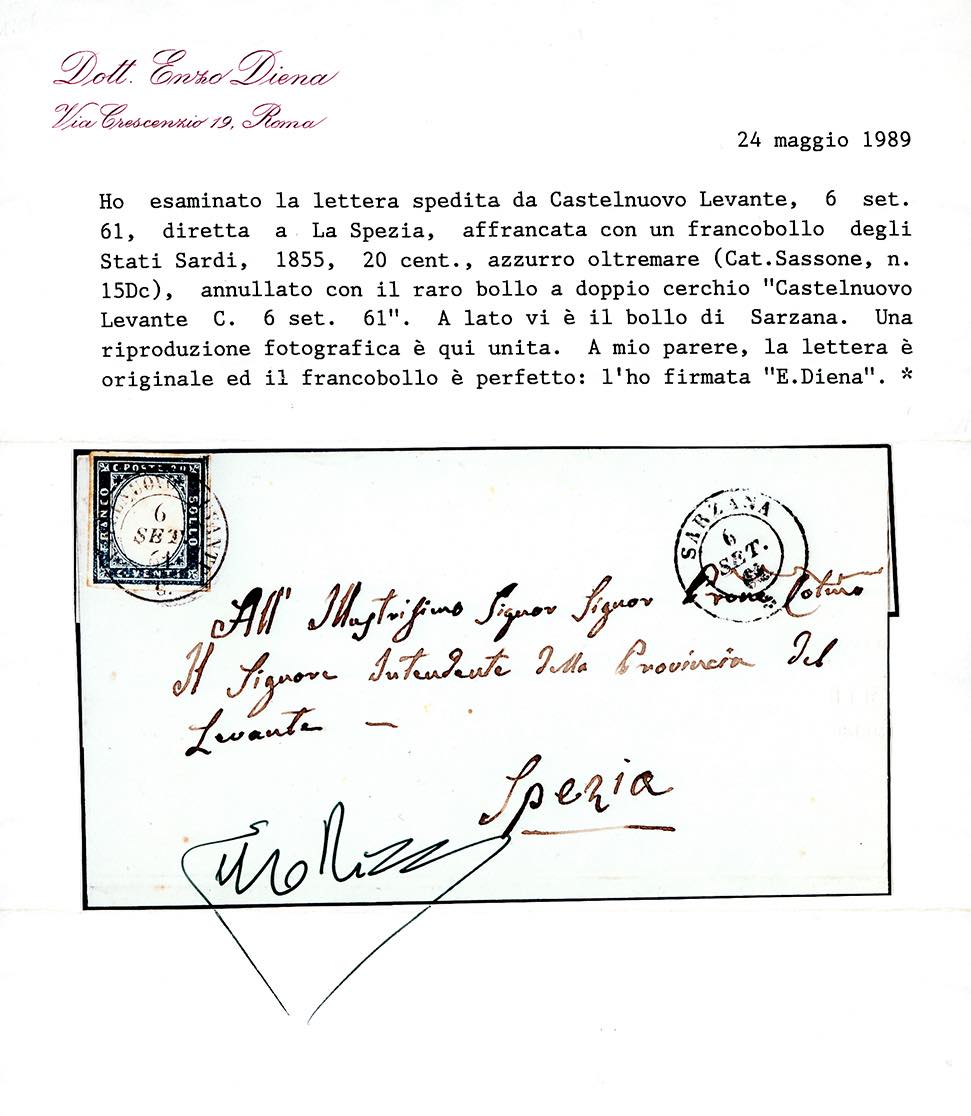 Dott. Enzo Diena
Via Crescenzio 19, Roma
24 maggio 1989
Ho esaminato la lettera spedita da Castelnuovo Levante, 6 set.
61, diretta a La Spezia, affrancata con un francobollo degli
Stati Sardi, 1855, 20 cent., azzurro oltremare (Cat.Sassone, n.
15Dc), annullato con il raro bollo a doppio cerchio "Castelnuovo
Levante C. 6 set. 61". A lato vi è il bollo di Sarzana. Una
riproduzione fotografica è qui unita. A mio parere, la lettera è
originale ed il francobollo è perfetto: l'ho firmata "E.Diena". *
C. POSTE 20
FRANCO
BOLLO
6
SET
61
SARZANA
6
SET.
61
All' Illustrissimo Signor Signor
Il Signore Intendente della Provincia del
Levante —
Spezia